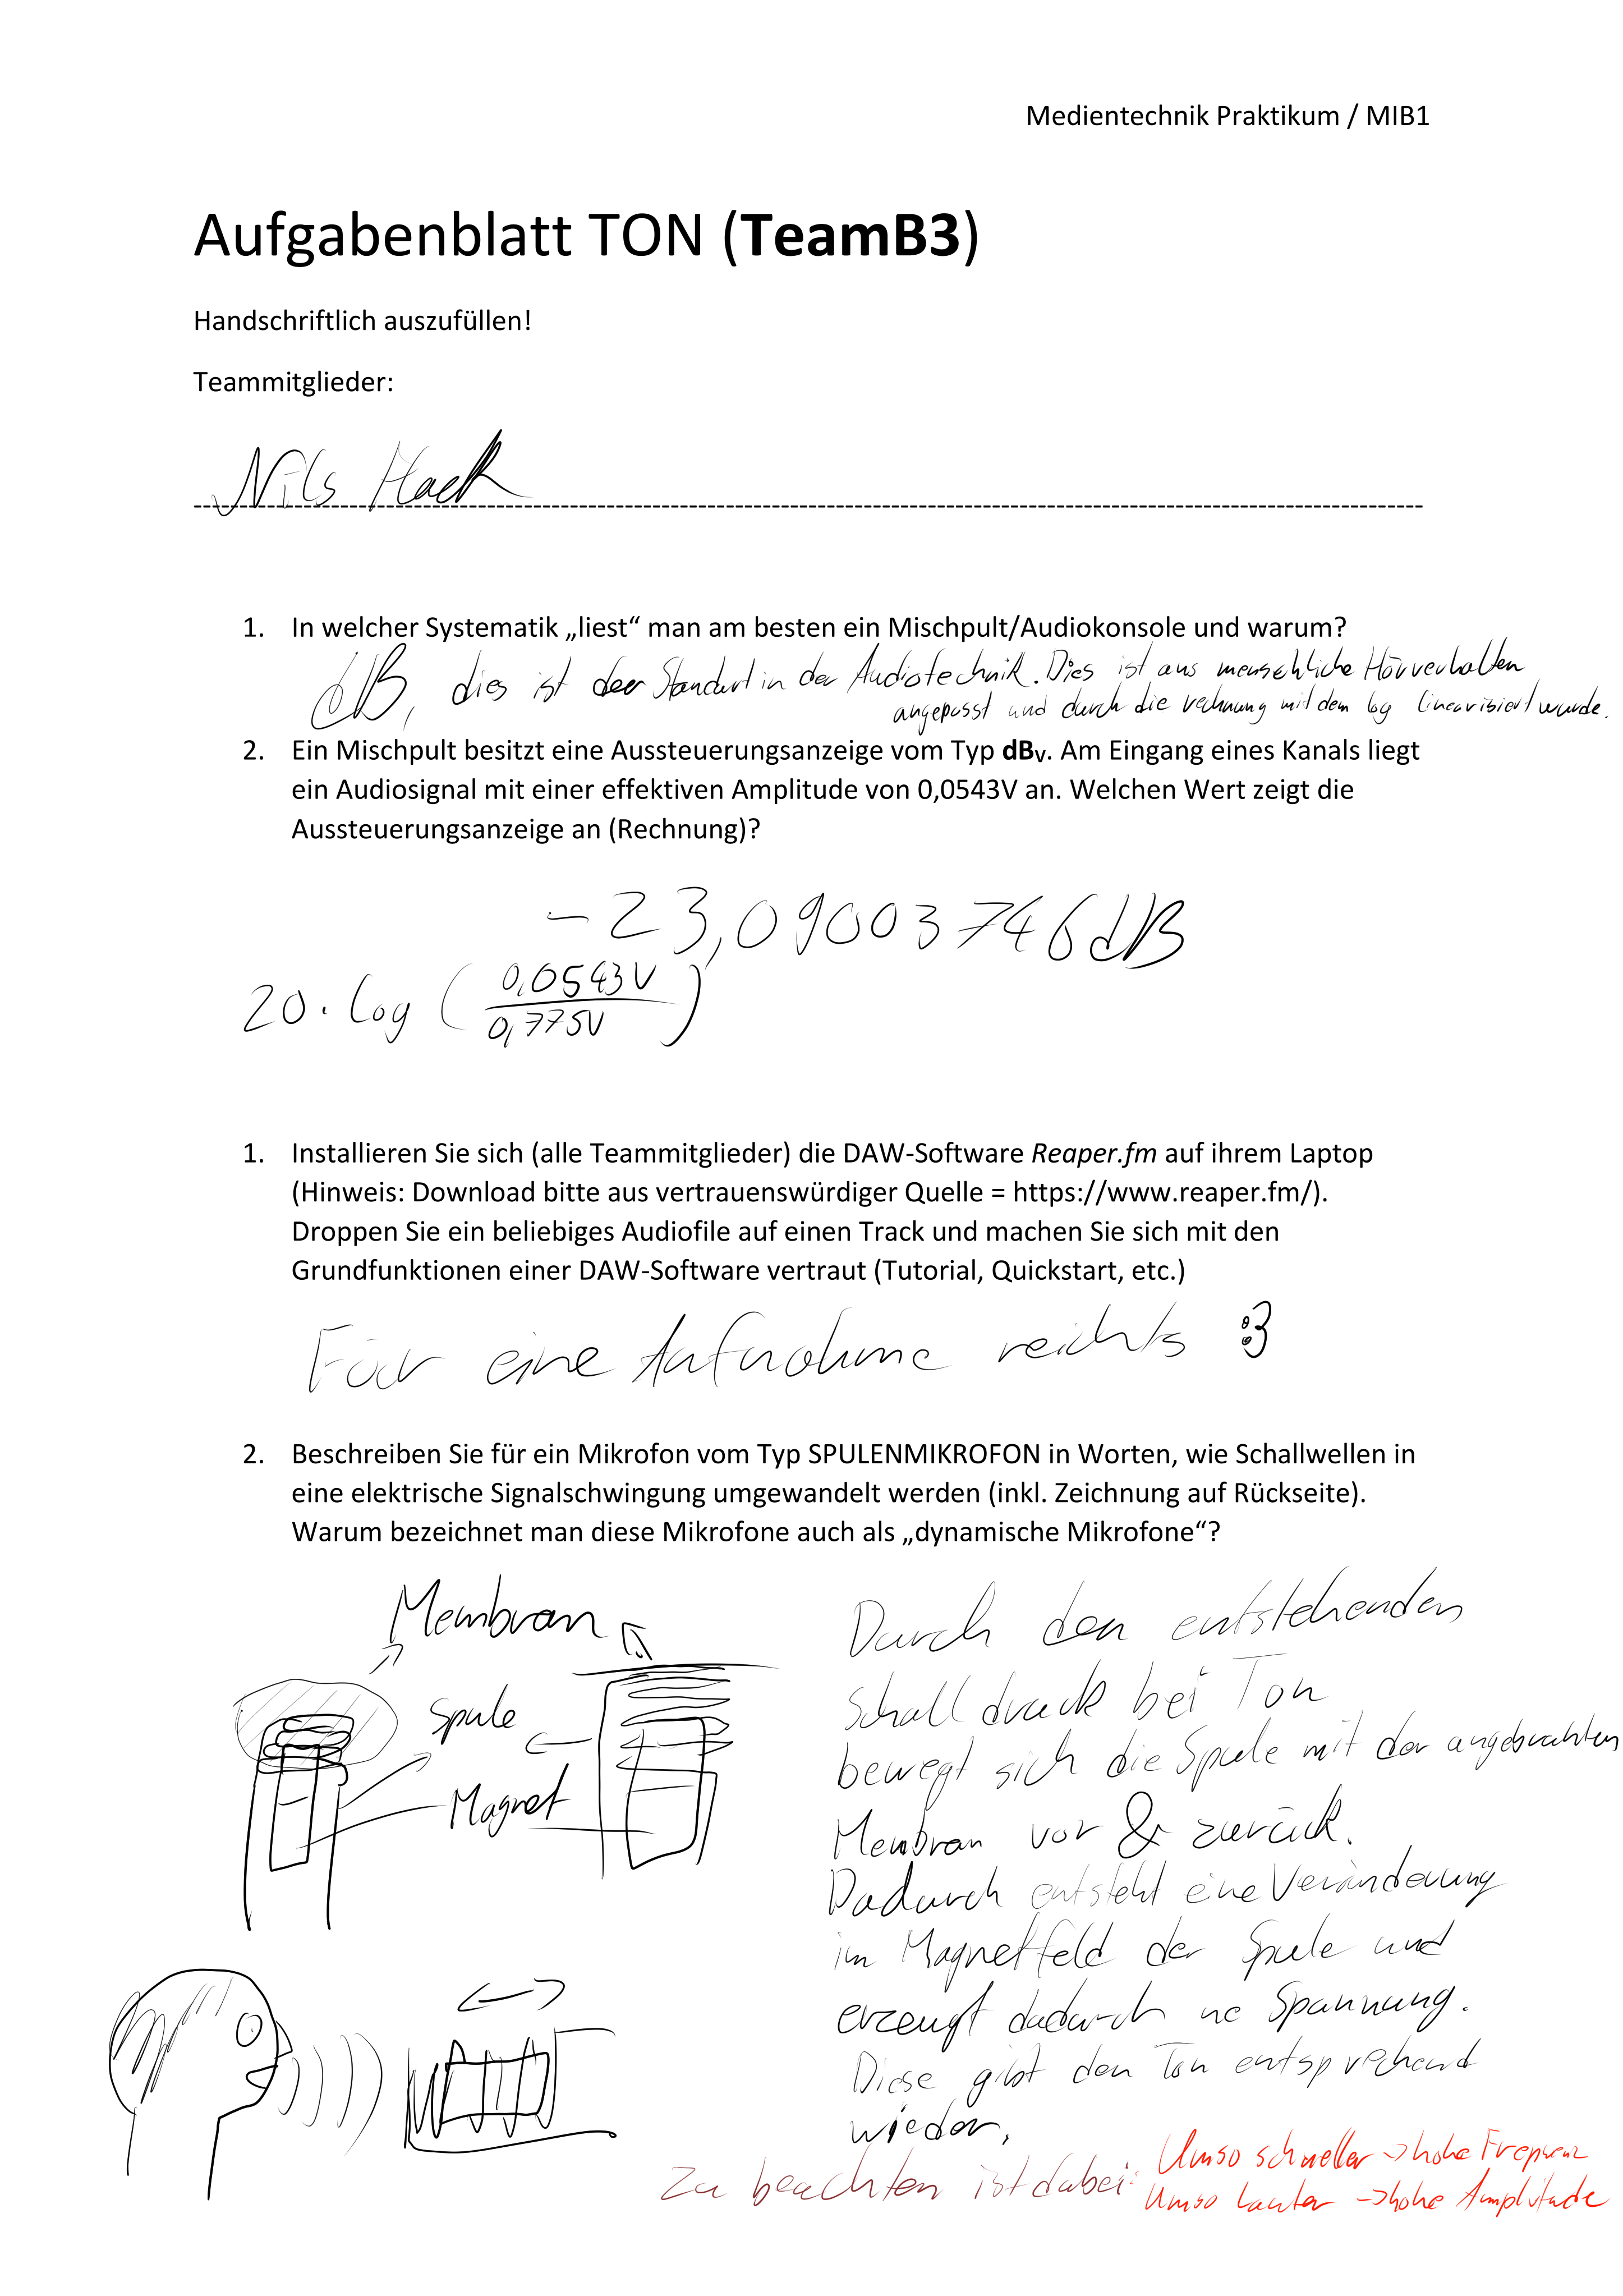 Medientechnik Praktikum / MIB1
Aufgabenblatt TON (TeamB3)
Handschriftlich auszufüllen!
Teammitglieder:
Nils Hack
1. In welcher Systematik „liest“ man am besten ein Mischpult/Audiokonsole und warum?
dB, dies ist der Standart in der Audiotechnik. Dies ist ans menschliche Hörverhalten
angepasst und durch die rechnung mit dem log linearisiert wurde.
2. Ein Mischpult besitzt eine Aussteuerungsanzeige vom Typ dBV. Am Eingang eines Kanals liegt
ein Audiosignal mit einer effektiven Amplitude von 0,0543V an. Welchen Wert zeigt die
Aussteuerungsanzeige an (Rechnung)?
-23,09003746dB
20 · log (0,0543V / 0,775V)
1. Installieren Sie sich (alle Teammitglieder) die DAW-Software Reaper.fm auf ihrem Laptop
(Hinweis: Download bitte aus vertrauenswürdiger Quelle = https://www.reaper.fm/).
Droppen Sie ein beliebiges Audiofile auf einen Track und machen Sie sich mit den
Grundfunktionen einer DAW-Software vertraut (Tutorial, Quickstart, etc.)
Für eine Aufnahme reichts :3
2. Beschreiben Sie für ein Mikrofon vom Typ SPULENMIKROFON in Worten, wie Schallwellen in
eine elektrische Signalschwingung umgewandelt werden (inkl. Zeichnung auf Rückseite).
Warum bezeichnet man diese Mikrofone auch als „dynamische Mikrofone“?
Membran
Spule
Magnet
Durch den entstehenden
Schalldruck bei Ton
bewegt sich die Spule mit der angebrachten
Membran vor & zurück.
Dadurch entsteht eine Veränderung
im Magnetfeld der Spule und
erzeugt dadurch ne Spannung.
Diese gibt den Ton entsprechend
wieder.
Zu beachten ist dabei:
Umso schneller -> hohe Frequenz
Umso lauter -> hohe Amplitude